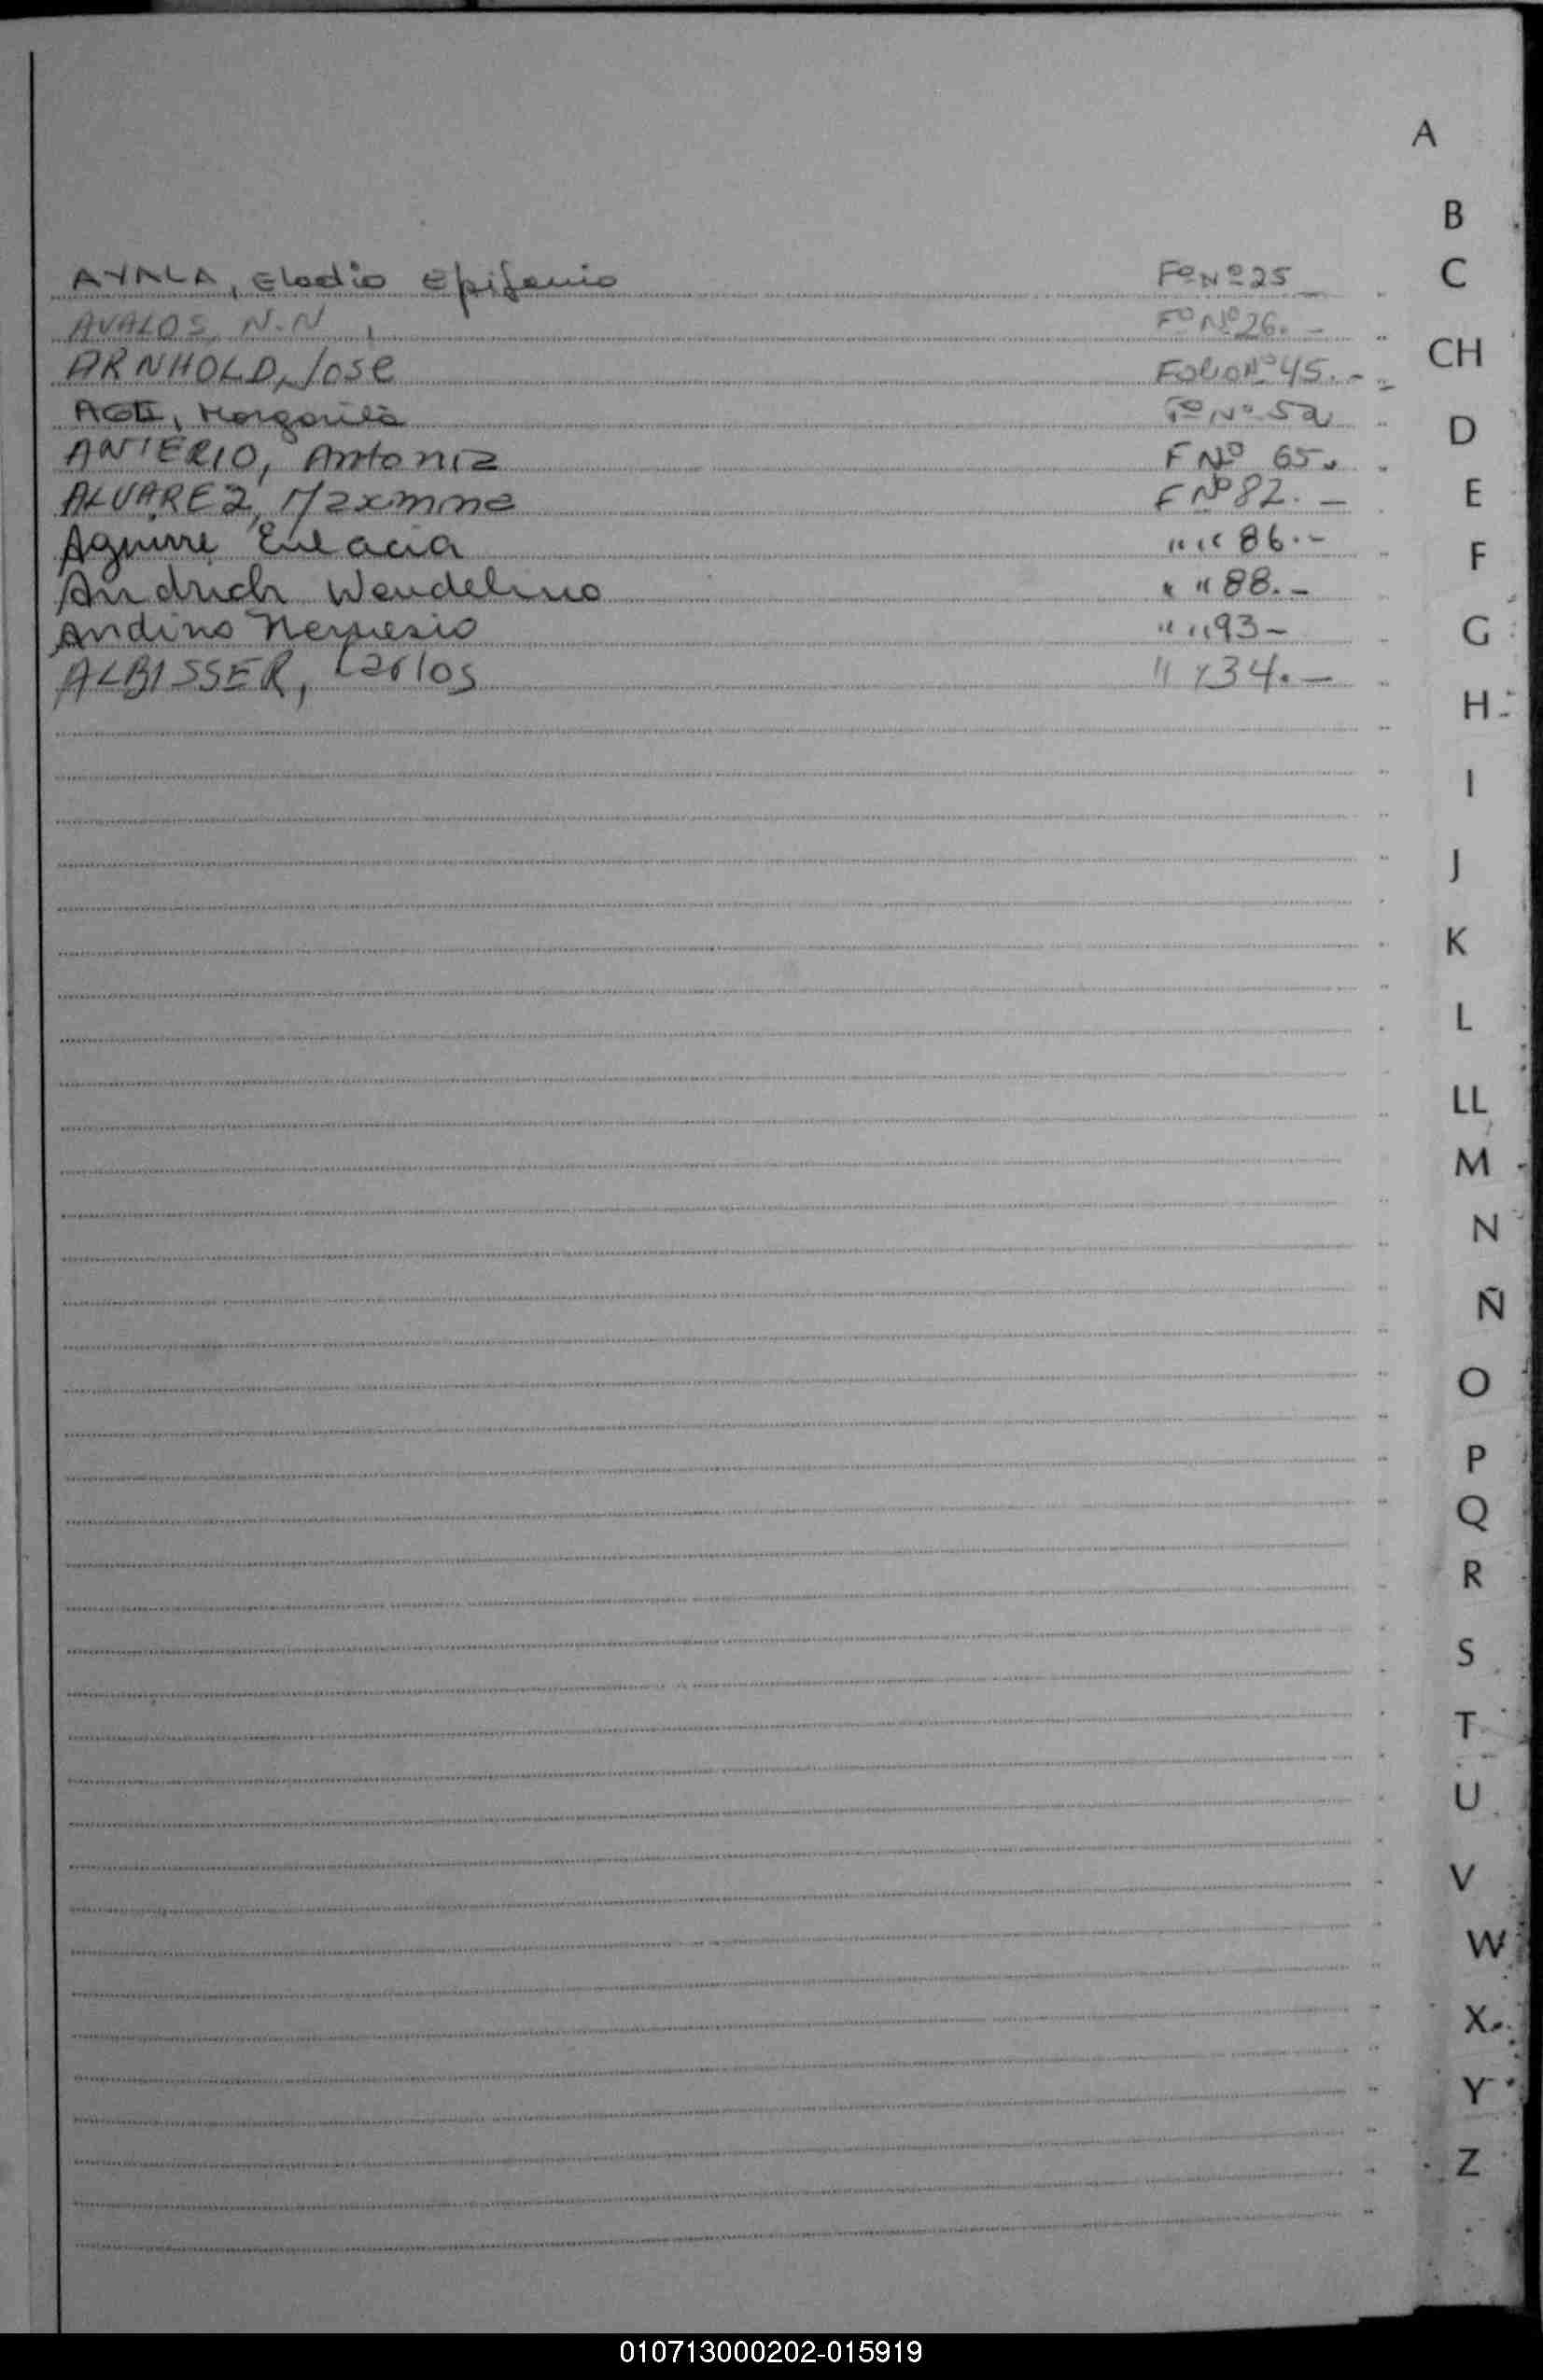 A
B
C
AYALA, Eladio Epifanio Fº Nº 25
AVALOS, N.N Fº Nº 26. -
CH
ARNHOLD, Jose Folio Nº 45. -
Margarita Fº Nº 52
D
ANTERIO, Antonia F Nº 65.
ALVAREZ, F Nº 82. -
E
Aguirre Eulacia " " 86. -
F
Andrich Wendelino " " 88. -
Andino Nemesio " " 93 -
G
ALBISSER, Carlos " 134. -
H
I
J
K
L
LL
M
N
Ñ
O
P
Q
R
S
T
U
V
W
X
Y
Z
010713000202-015919